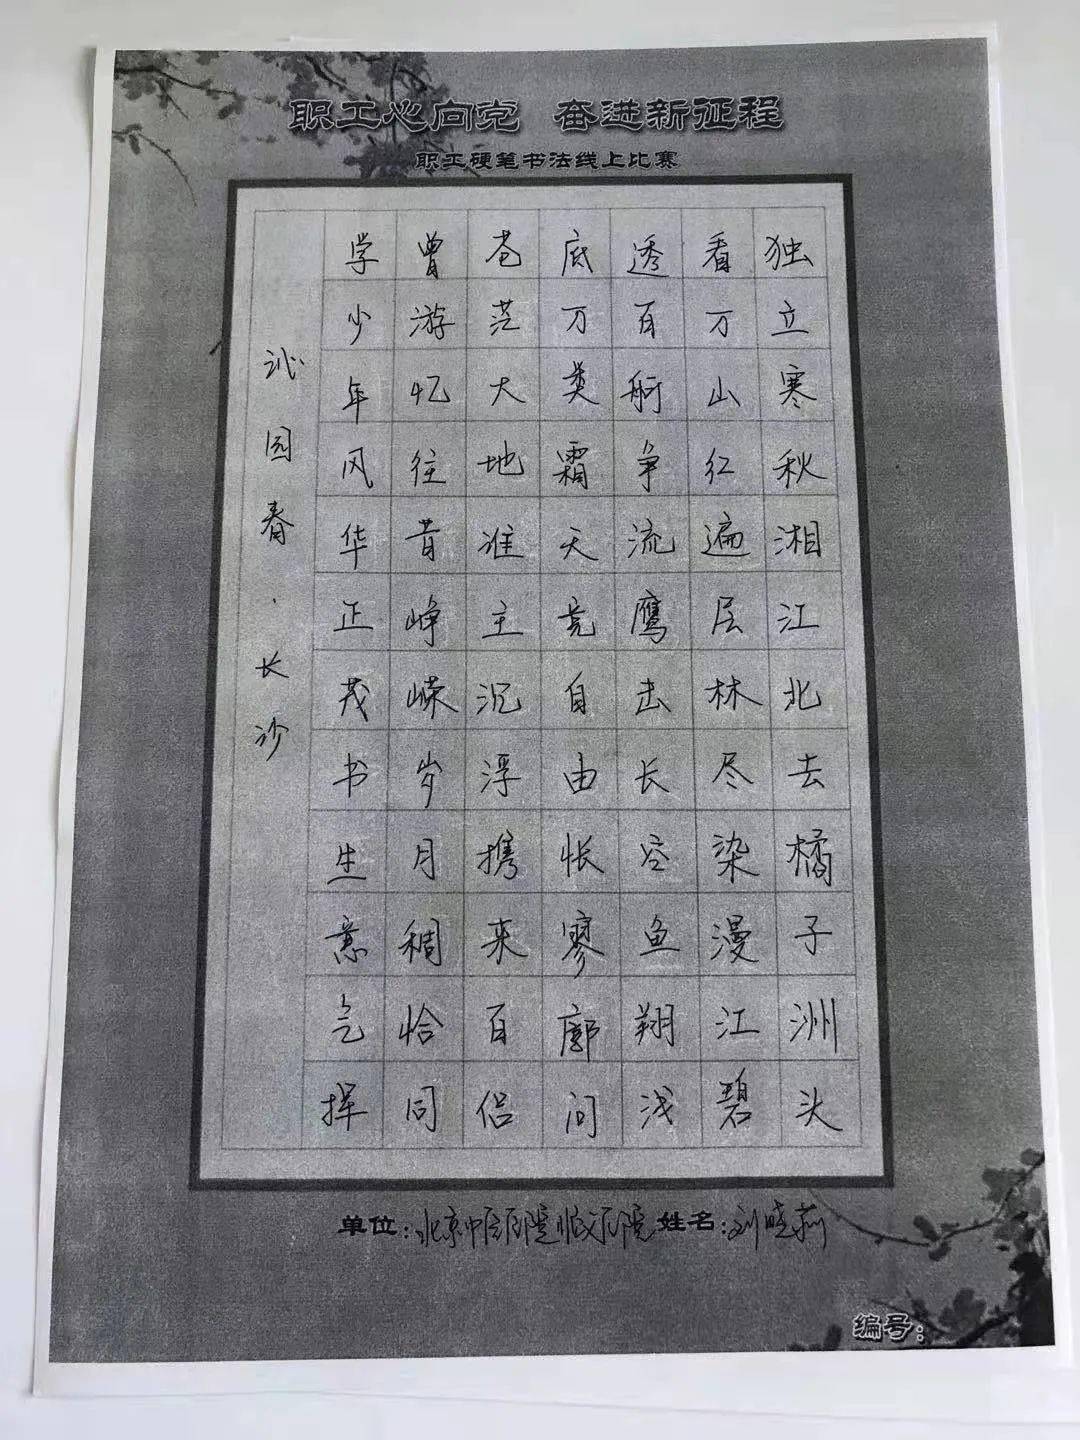 职工心向党 奋进新征程
职工硬笔书法线上比赛
独立寒秋湘江北去橘子洲头
看万山红遍层林尽染漫江碧
透百舸争流鹰击长空鱼翔浅
底万类霜天竞自由怅寥廓问
苍茫大地谁主沉浮携来百侣
曾游忆往昔峥嵘岁月稠恰同
学少年风华正茂书生意气挥
沁园春·长沙
单位:北京中医医院顺义医院 姓名:刘晓莉
编号: